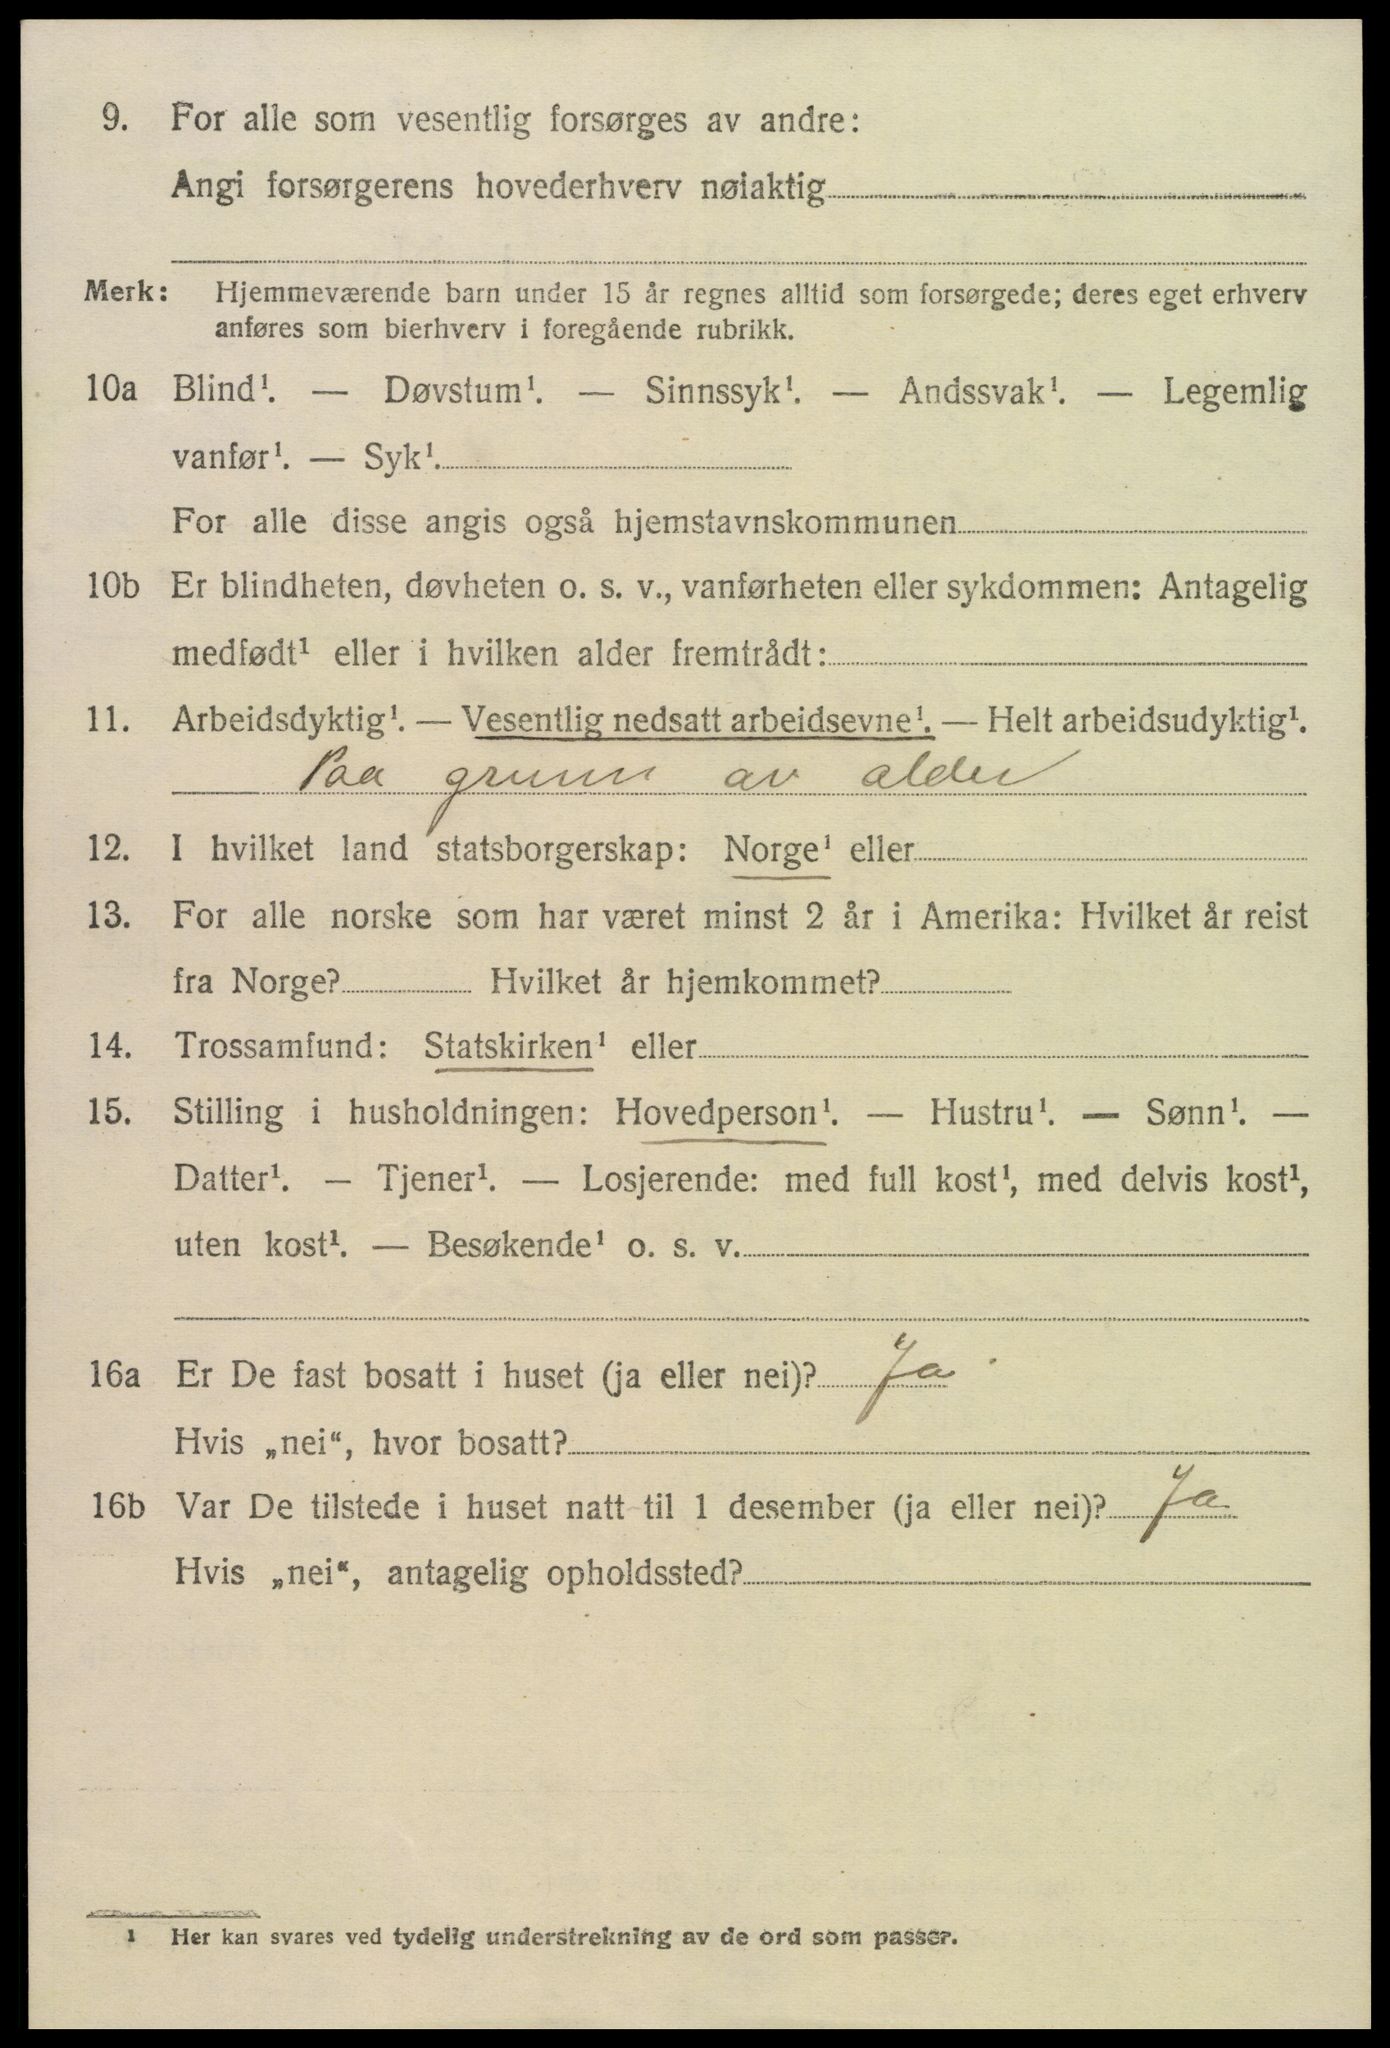 9. For alle som vesentlig forsørges av andre:
Angi forsørgerens hovederhverv nøiaktig
Merk: Hjemmeværende barn under 15 år regnes alltid som forsørgede; deres eget erhverv
anføres som bierhverv i foregående rubrikk.
10a Blind¹. — Døvstum¹. — Sinnssyk¹. — Andssvak¹. — Legemlig
vanfør¹. — Syk¹.
For alle disse angis også hjemstavnskommunen
10b Er blindheten, døvheten o. s. v., vanførheten eller sykdommen: Antagelig
medfødt¹ eller i hvilken alder fremtrådt:
11. Arbeidsdyktig¹. — Vesentlig nedsatt arbeidsevne¹. — Helt arbeidsudyktig¹.
Paa grunn av alder
12. I hvilket land statsborgerskap: Norge¹ eller
13. For alle norske som har været minst 2 år i Amerika: Hvilket år reist
fra Norge? Hvilket år hjemkommet?
14. Trossamfund: Statskirken¹ eller
15. Stilling i husholdningen: Hovedperson¹. — Hustru¹. — Sønn¹. —
Datter¹. — Tjener¹. — Losjerende: med full kost¹, med delvis kost¹,
uten kost¹. — Besøkende¹ o. s. v.
16a Er De fast bosatt i huset (ja eller nei)? Ja
Hvis „nei“, hvor bosatt?
16b Var De tilstede i huset natt til 1 desember (ja eller nei)? Ja
Hvis „nei“, antagelig opholdssted?
1 Her kan svares ved tydelig understrekning av de ord som passer.